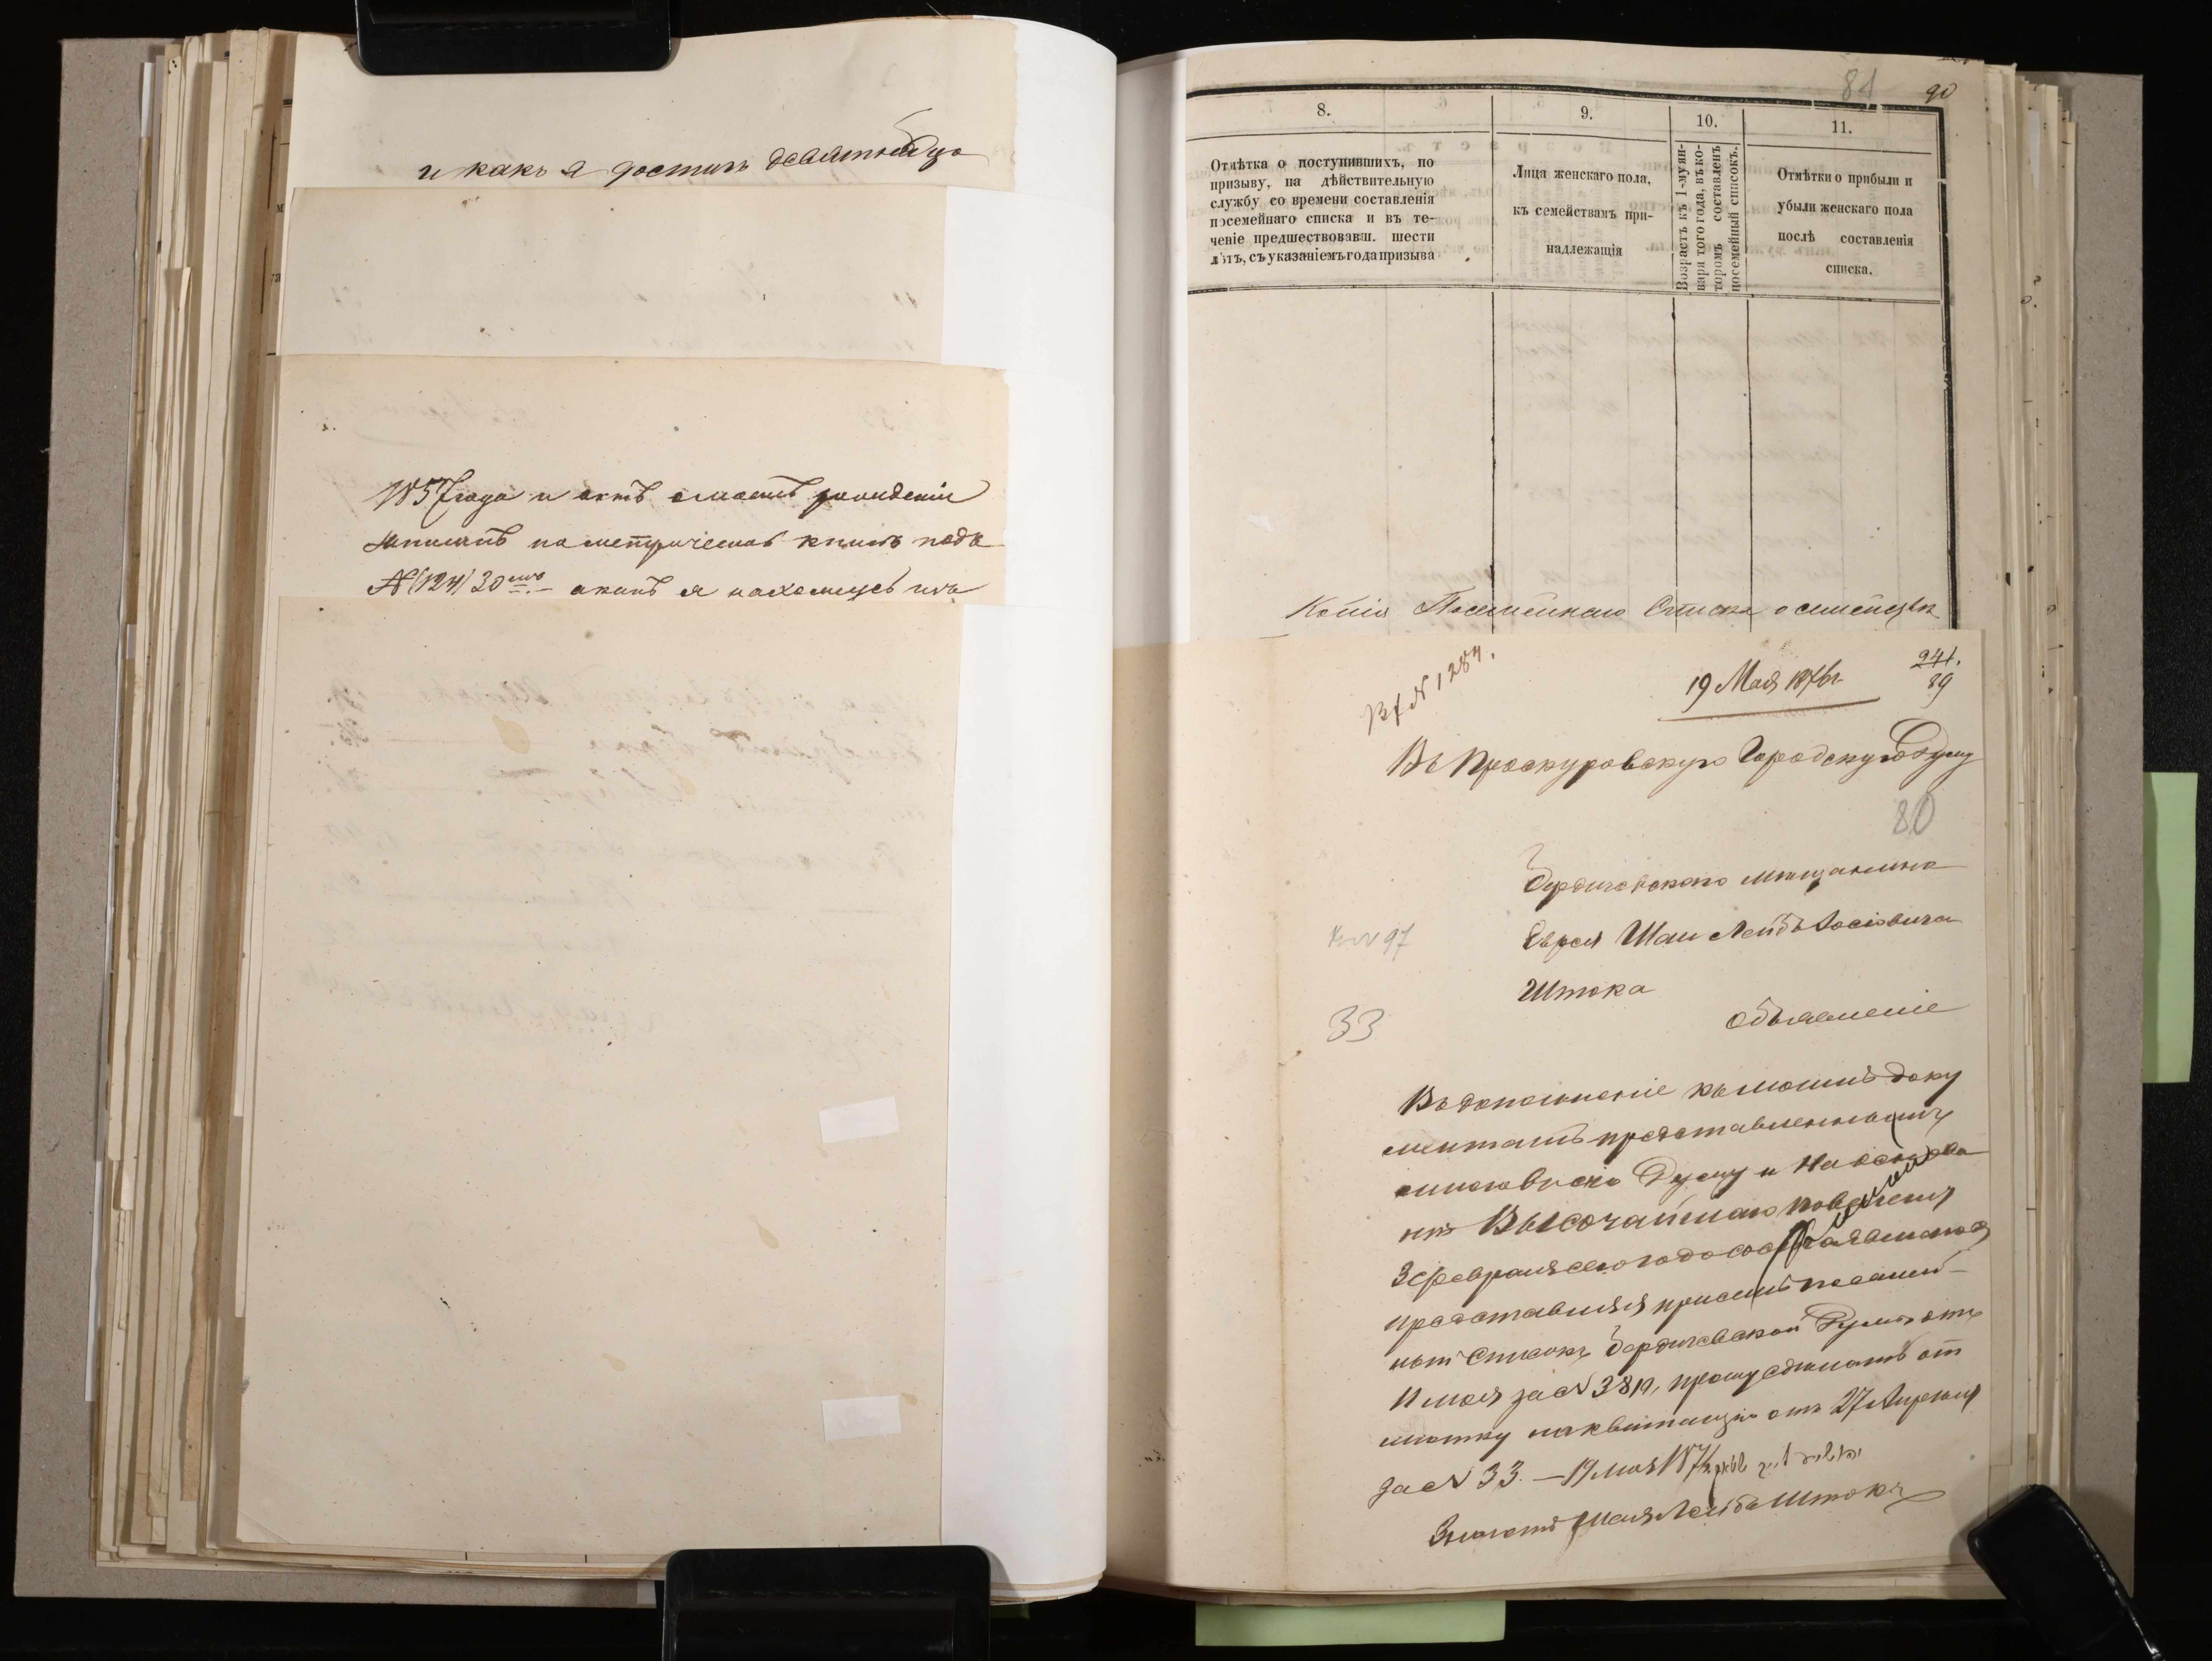 и какъ я достигъ девятнадца
1857 года и актъ о моемъ рожденіи
записанъ по метрической книгѣ подъ
№ (124) 30
84
90
8.
9.
10.
11.
Отмѣтка о поступившихъ, по
призыву, на дѣйствительную
службу со времени составленія
посемейнаго списка и въ те-
ченіе предшествовавш. шести
лѣтъ, съ указаніемъ года призыва
Лица женскаго пола,
къ семействамъ при-
надлежащія
Возрастъ къ 1-му ян-
варя того года, въ ко-
торомъ составленъ
посемейный списокъ.
Отмѣтки о прибыли и
убыли женскаго пола
послѣ составленія
списка.
Копія Посемейнаго Списка о семействѣ
Вх № 1284.
19 Мая 1876 г.
241.
89
Въ Проскуровскую Городскую Думу
80
Бердичевскаго мѣщанина
97
Еврея Шаи Лейбъ Іосіовича
Штока
33
Объявленіе
Въ дополненіе къ моимъ доку
ментамъ представленнымъ
мною въ сію Думу и на основа
ніи Высочайшаго повеленія
3 февраля сего года
представляя при семъ посемей-
ный списокъ Бердичевской Думы отъ
11 мая за № 3819, прошу сдѣлать от
мѣтку на квитанціи отъ 27 Апреля
за № 33. — 19 мая 187
Шая Лейба Штокъ